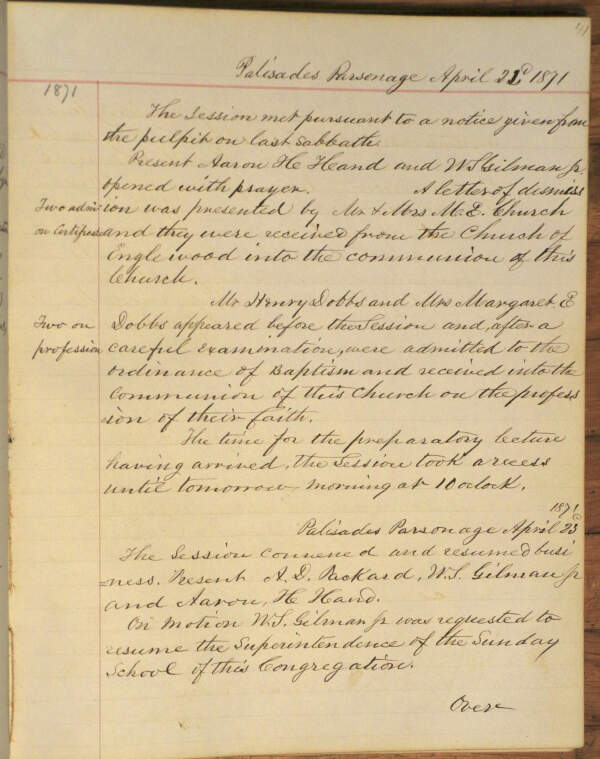 Palisades Parsonage April 22d 1871
1871
The Session met pursuant to a notice given from
the pulpit on last Sabbath.
Present Aaron H Hand and W S Gilman Jr.
opened with prayer. A letter of dismiss
Two adm
ion was presented by Mr & Mrs M. E. Church
on Certificate
and they were received from the Church of
Englewood into the communion of this
Church.
Mr Henry Dobbs and Mrs Margaret E
Two on
Dobbs appeared before the Session and, after a
profession
careful examination, were admitted to the
ordinance of Baptism and received into the
Communion of this Church on the profess
ion of their faith.
The time for the preparatory lecture
having arrived, the Session took a recess
until tomorrow morning at 10 oclock.
1871
Palisades Parsonage April 23d
The Session convened and resumed busi
=ness. Present A. D. Packard, W. S. Gilman Jr
and Aaron, H. Hand.
On Motion W. S. Gilman Jr was requested to
resume the Superintendence of the Sunday
School of this Congregation.
Over